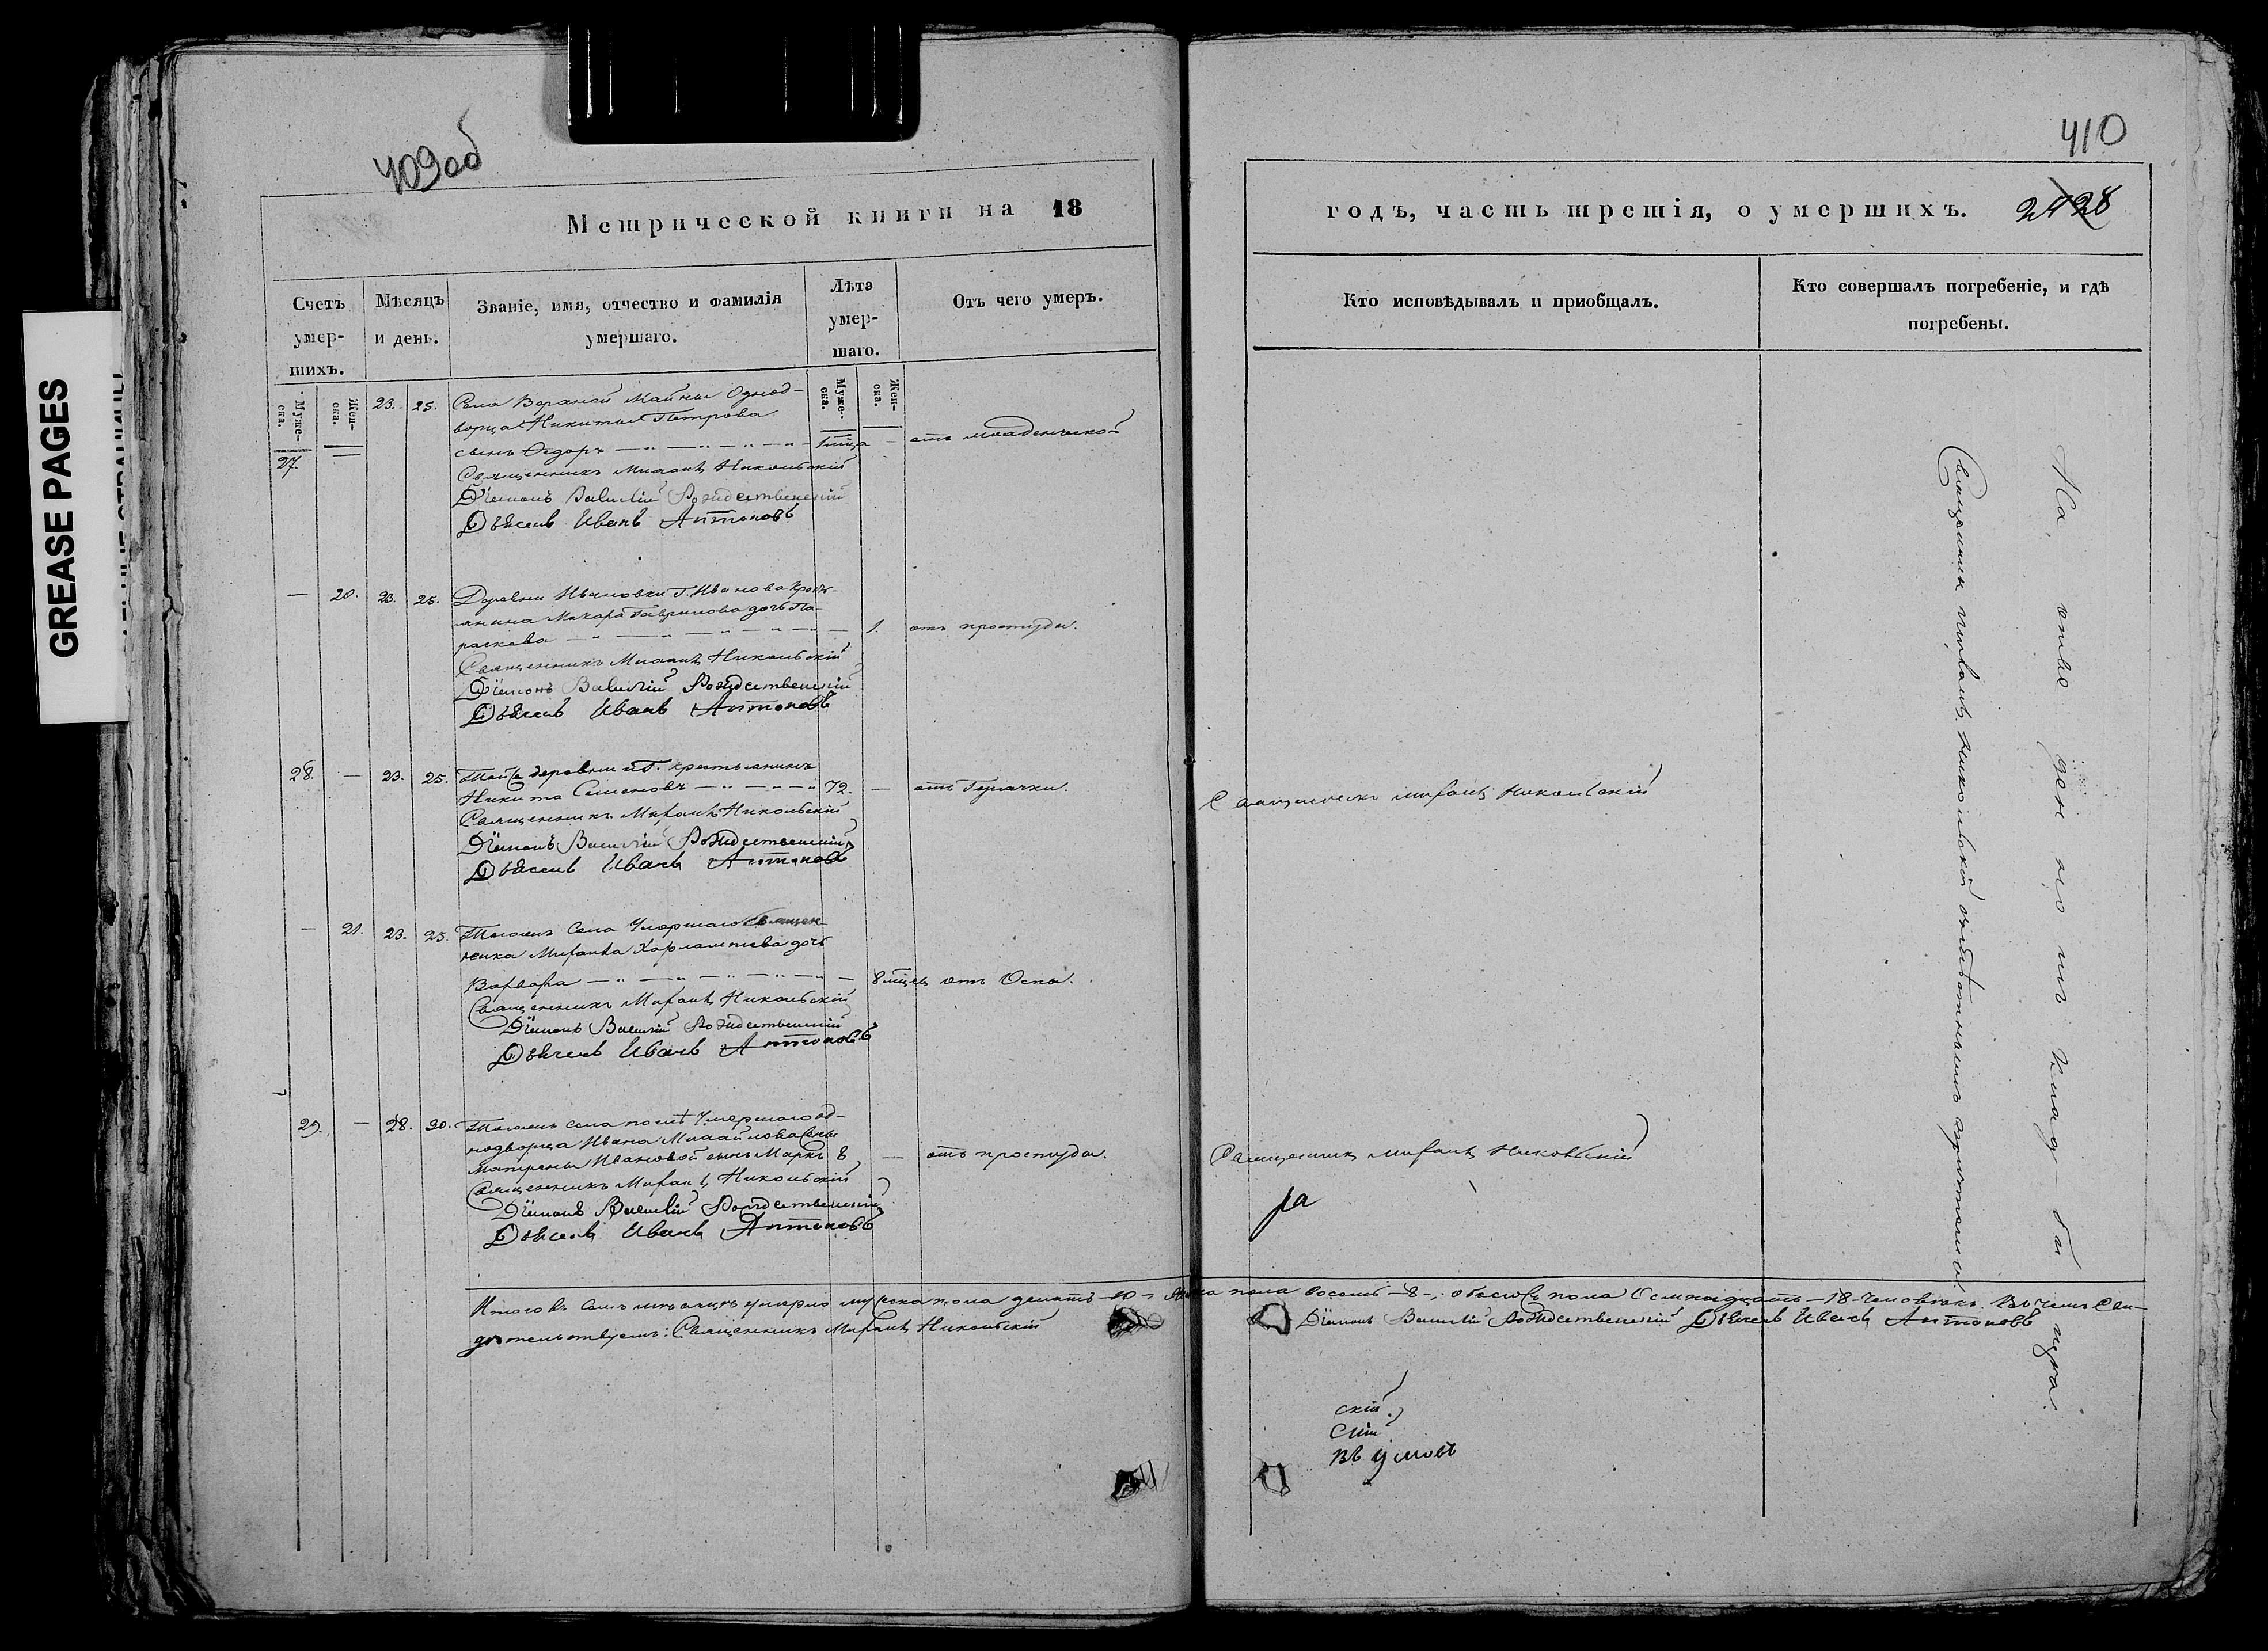 GREASE PAGES
409об
Метрической книги на 18
Счетъ умер-шихъ.
Мѣсяцъ и день.
Званіе, имя, отчество и фамилія умершаго.
Лѣта умер-шаго.
Отъ чего умеръ.
Муже-ска.
Жен-ска.
Муже-ска.
Жен-ска.
27.
23. 25. Села Верхной Майны Однод-
ворца Никиты Петрова
сынъ Ѳедоръ
отъ младенческой
Священникъ Михаилъ Никольскій
Діаконъ Василій Рождественскій
Дьячекъ Иванъ Антоновъ
— 20. 23. 25. Деревни Ивановки Г. Иванова кресть-
янина Макара Гаврилова дочь Па-
раскева — 1. отъ простуды.
Священникъ Михаилъ Никольскій
Діаконъ Василій Рождественскій
Дьячекъ Иванъ Антоновъ
28. — 23. 25. Той же деревни и Г. крестьянинъ
Никита Семеновъ 72. — отъ Горячки.
Священникъ Михаилъ Никольскій
Діаконъ Василій Рождественскій
Дьячекъ Иванъ Антоновъ
— 21. 23. 25. Села Умершаго священ-
ника Михаила Харлампіева дочь
Варвара — 8 отъ Оспы.
Священникъ Михаилъ Никольскій
Діаконъ Василій Рождественскій
Дьячекъ Иванъ Антоновъ
29. — 28. 30. села послѣ Умершаго од-
нодворца Ивана Михайлова
Матрены Ивановой сынъ Маркъ 8 — отъ простуды.
Священникъ Михаилъ Никольскій
Діаконъ Василій Рождественскій
Дьячекъ Иванъ Антоновъ
Итого въ семъ мѣсяцѣ умерло мужеска пола
дѣтельствуемъ: Священникъ Михаилъ Никольскій
410
годъ, часть третія, о умершихъ.
28
Кто исповѣдывалъ и пріобщалъ.
Кто совершалъ погребеніе, и гдѣ погребены.
Священникъ Михаилъ Никольскій
Священникъ Михаилъ Никольскій
ра
пола восемь — 8 — обоего пола Осмнадцать — 18 человѣкъ. Въ чемъ Сви-
Діаконъ Василій Рождественскій Дьячекъ Иванъ Антоновъ
скій
скій
На отве ден но мъ клад би ща.
Священникъ Михаилъ Никольскій